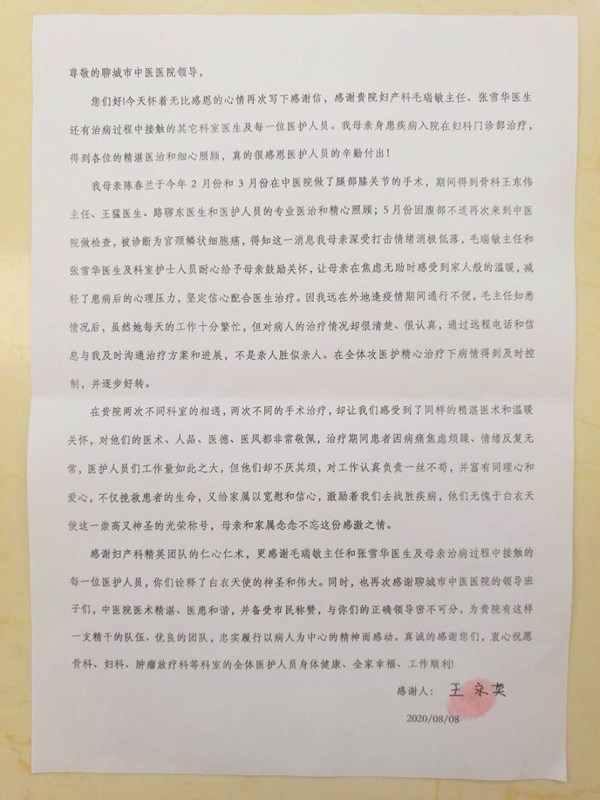 尊敬的聊城市中医医院领导，
您们好!今天怀着无比感恩的心情再次写下感谢信，感谢贵院妇产科毛瑞敏主任、张雪华医生
还有治病过程中接触的其它科室医生及每一位医护人员。我母亲身患疾病入院在妇科门诊部治疗，
得到各位的精湛医治和细心照顾，真的很感恩医护人员的辛勤付出！
我母亲陈春兰于今年 2 月份和 3 月份在中医院做了腿部膝关节的手术，期间得到骨科王东伟
主任、王猛医生、路聊东医生和医护人员的专业医治和精心照顾；5 月份因腹部不适再次来到中医
院做检查，被诊断为宫颈鳞状细胞癌，得知这一消息我母亲深受打击情绪消极低落，毛瑞敏主任和
张雪华医生及科室护士人员耐心给予母亲鼓励关怀，让母亲在焦虑无助时感受到家人般的温暖，减
轻了患病后的心理压力，坚定信心配合医生治疗。因我远在外地逢疫情期间通行不便，毛主任知悉
情况后，虽然她每天的工作十分繁忙，但对病人的治疗情况却很清楚、很认真，通过远程电话和信
息与我及时沟通治疗方案和进展，不是亲人胜似亲人。在全体攻医护精心治疗下病情得到及时控
制，并逐步好转。
在贵院两次不同科室的相遇，两次不同的手术治疗，却让我们感受到了同样的精湛医术和温暖
关怀，对他们的医术、人品、医德、医风都非常敬佩，治疗期间患者因病痛焦虑烦躁、情绪反复无
常，医护人员们工作量如此之大，但他们却不厌其烦，对工作认真负责一丝不苟，并富有同理心和
爱心，不仅挽救患者的生命，又给家属以宽慰和信心，激励着我们去战胜疾病，他们无愧于白衣天
使这一崇高又神圣的光荣称号，母亲和家属念念不忘这份感激之情。
感谢妇产科精英团队的仁心仁术，更感谢毛瑞敏主任和张雪华医生及母亲治病过程中接触的
每一位医护人员，你们诠释了白衣天使的神圣和伟大。同时，也再次感谢聊城市中医医院的领导班
子们，中医院医术精湛、医患和谐，并备受市民称赞，与你们的正确领导密不可分，为贵院有这样
一支精干的队伍、优良的团队，忠实履行以病人为中心的精神而感动。真诚的感谢您们，衷心祝愿
骨科、妇科、肿瘤放疗科等科室的全体医护人员身体健康、全家幸福、工作顺利!
感谢人：王永英
2020/08/08